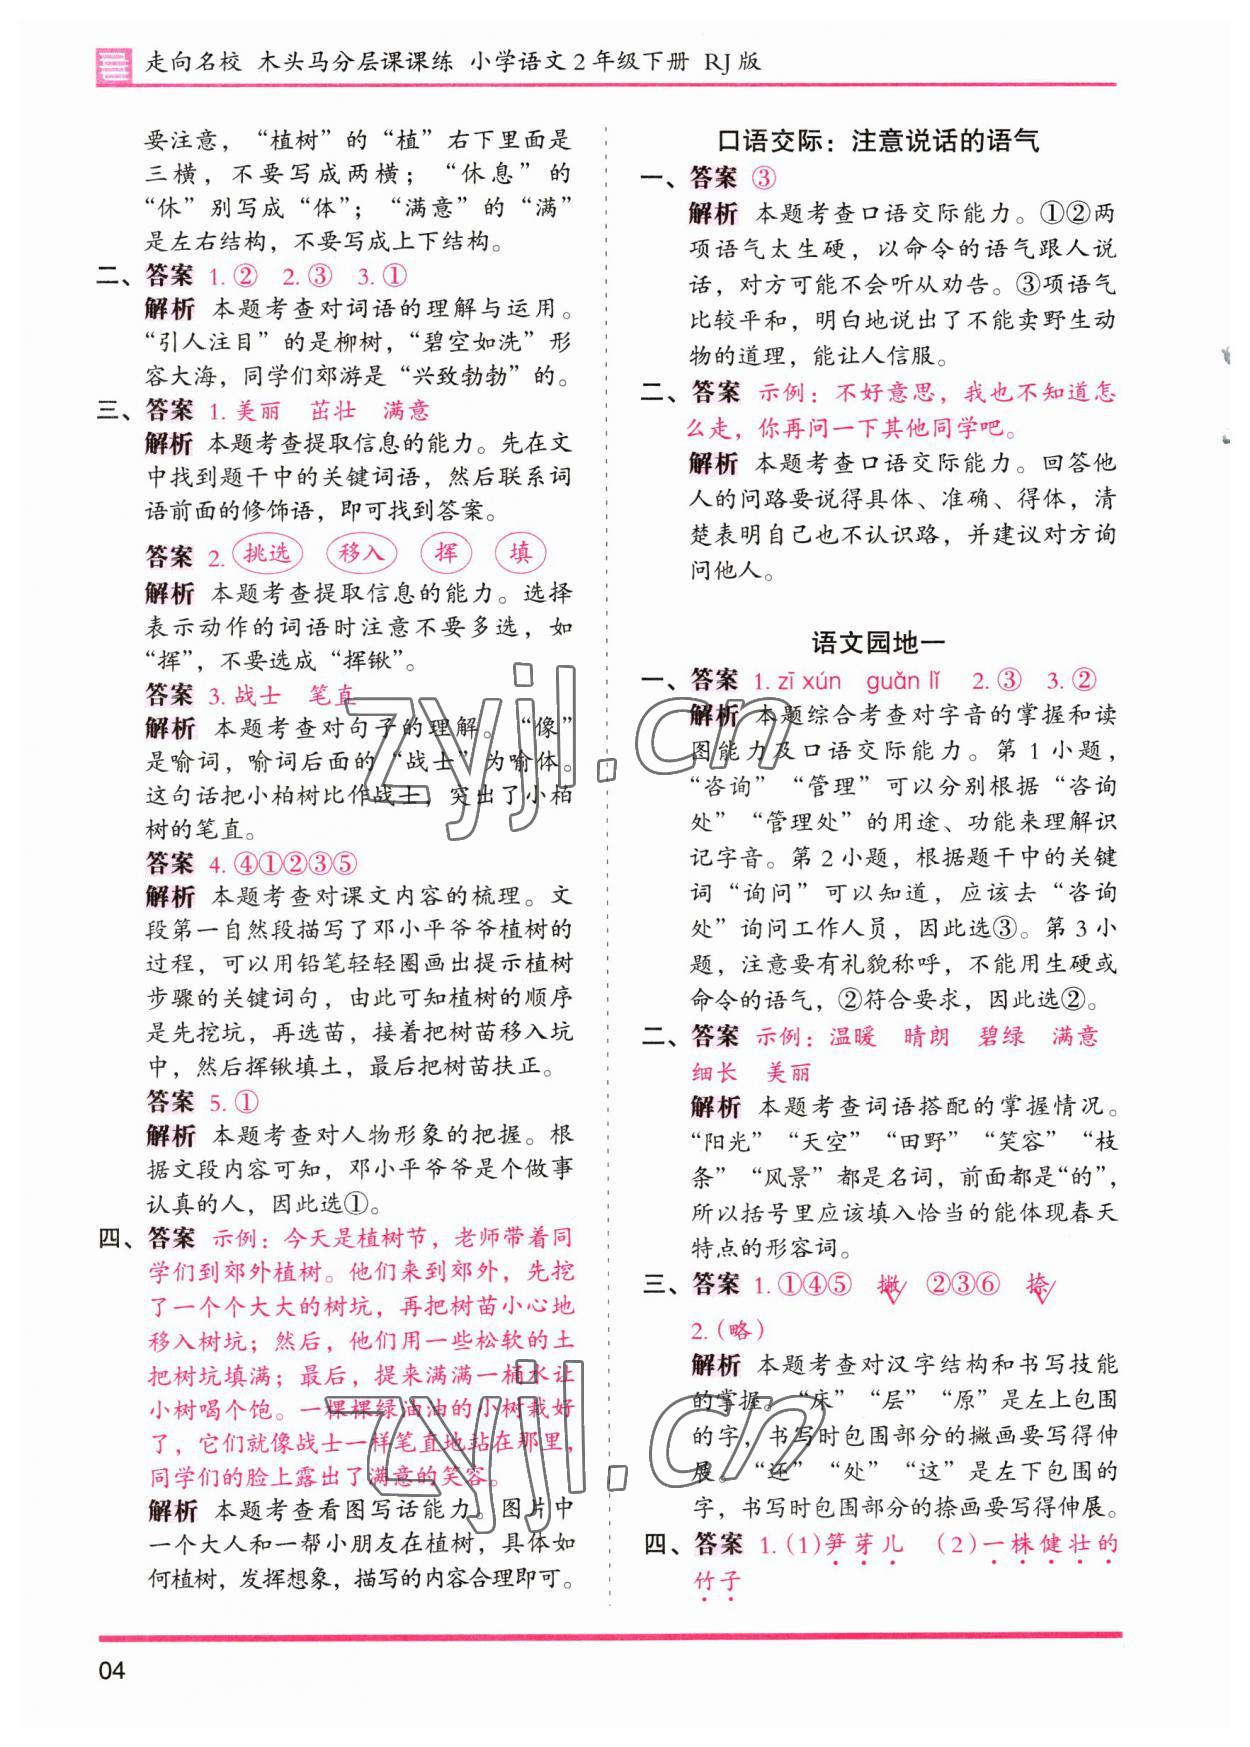 走向名校 木头马分层课课练 小学语文2年级下册 RJ版
要注意，“植树”的“植”右下里面是
三横，不要写成两横；“休息”的
“休”别写成“体”；“满意”的“满”
是左右结构，不要写成上下结构。
二、答案 1.② 2.③ 3.①
解析 本题考查对词语的理解与运用。
“引人注目”的是柳树，“碧空如洗”形
容大海，同学们郊游是“兴致勃勃”的。
三、答案 1.美丽 茁壮 满意
解析 本题考查提取信息的能力。先在文
中找到题干中的关键词语，然后联系词
语前面的修饰语，即可找到答案。
答案 2.挑选 移入 挥 填
解析 本题考查提取信息的能力。选择
表示动作的词语时注意不要多选，如
“挥”，不要选成“挥锹”。
答案 3.战士 笔直
解析 本题考查对句子的理解。“像”
是喻词，喻词后面的“战士”为喻体。
这句话把小柏树比作战士，突出了小柏
树的笔直。
答案 4.④①②③⑤
解析 本题考查对课文内容的梳理。文
段第一自然段描写了邓小平爷爷植树的
过程，可以用铅笔轻轻圈画出提示植树
步骤的关键词句，由此可知植树的顺序
是先挖坑，再选苗，接着把树苗移入坑
中，然后挥锹填土，最后把树苗扶正。
答案 5.①
解析 本题考查对人物形象的把握。根
据文段内容可知，邓小平爷爷是个做事
认真的人，因此选①。
四、答案 示例：今天是植树节，老师带着同
学们到郊外植树。他们来到郊外，先挖
了一个个大大的树坑，再把树苗小心地
移入树坑；然后，他们用一些松软的土
把树坑填满；最后，提来满满一桶水让
小树喝个饱。一棵棵绿油油的小树栽好
了，它们就像战士一样笔直地站在那里，
同学们的脸上露出了满意的笑容。
解析 本题考查看图写话能力。图片中
一个大人和一帮小朋友在植树，具体如
何植树，发挥想象，描写的内容合理即可。
口语交际：注意说话的语气
一、答案 ③
解析 本题考查口语交际能力。①②两
项语气太生硬，以命令的语气跟人说
话，对方可能不会听从劝告。③项语气
比较平和，明白地说出了不能卖野生动
物的道理，能让人信服。
二、答案 示例：不好意思，我也不知道怎
么走，你再问一下其他同学吧。
解析 本题考查口语交际能力。回答他
人的问路要说得具体、准确、得体，清
楚表明自己也不认识路，并建议对方询
问他人。
语文园地一
一、答案 1. zī xún guǎn lǐ 2.③ 3.②
解析 本题综合考查对字音的掌握和读
图能力及口语交际能力。第1小题，
“咨询”“管理”可以分别根据“咨询
处”“管理处”的用途、功能来理解识
记字音。第2小题，根据题干中的关键
词“询问”可以知道，应该去“咨询
处”询问工作人员，因此选③。第3小
题，注意要有礼貌称呼，不能用生硬或
命令的语气，②符合要求，因此选②。
二、答案 示例：温暖 晴朗 碧绿 满意
细长 美丽
解析 本题考查词语搭配的掌握情况。
“阳光”“天空”“田野”“笑容”“枝
条”“风景”都是名词，前面都是“的”，
所以括号里应该填入恰当的能体现春天
特点的形容词。
三、答案 1.①④⑤ 撇√ ②③⑥ 捺√
2.(略)
解析 本题考查对汉字结构和书写技能
的掌握。“床”“层”“原”是左上包围
的字，书写时包围部分的撇画要写得伸
展。“还”“处”“这”是左下包围的
字，书写时包围部分的捺画要写得伸展。
四、答案 1.(1)笋芽儿 (2)一株健壮的
竹子
04
zyjl.cn
zyjl.cn